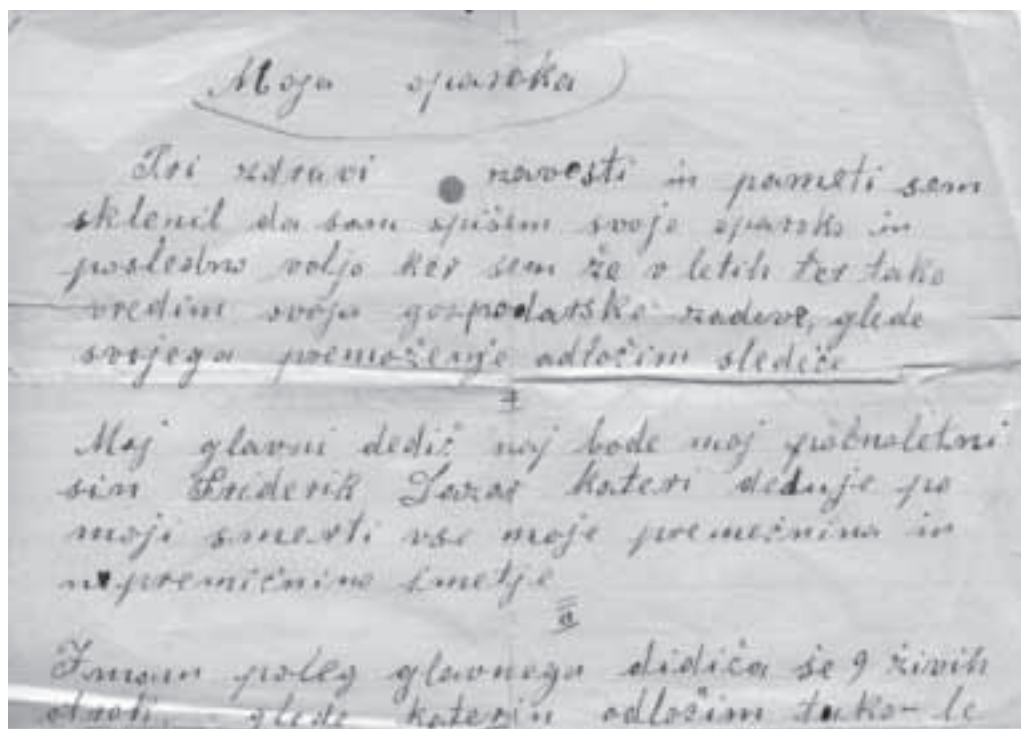 Moja oparoka
Pri zdravi zavesti in pameti sem
sklenil da sam spišem svojo oparoko in
posledno voljo ker sem že v letih ter tako
vredim svoja gospodarske zadeve, glede
svojega premoženje odločim sledeče
Moj glavni dedič naj bode moj polnoletni
sin Friderik Lazar kateri deduje po
moji smerti vse moje premećnino in
nepremićnino imetje
Imam poleg glavnega didića še 9 živih
otrok, glede katerih odločim tako-le